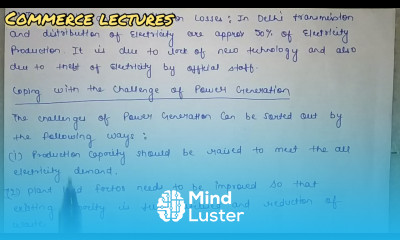 COMMERCE LECTURES
Losses: In Delhi transmission
and distribution of Electricity are approx 50% of Electricity
Production. It is due to lack of new technology and also
due to theft of Electricity by official staff.
Coping with the Challenge of Power Generation
The challenges of Power Generation Can be sorted out by
the following ways:
(1) Production Capacity should be raised to meet the all
electricity demand.
(2) Plant load factor needs to be improved so that
existing capacity is and reduction of
Mind
Luster